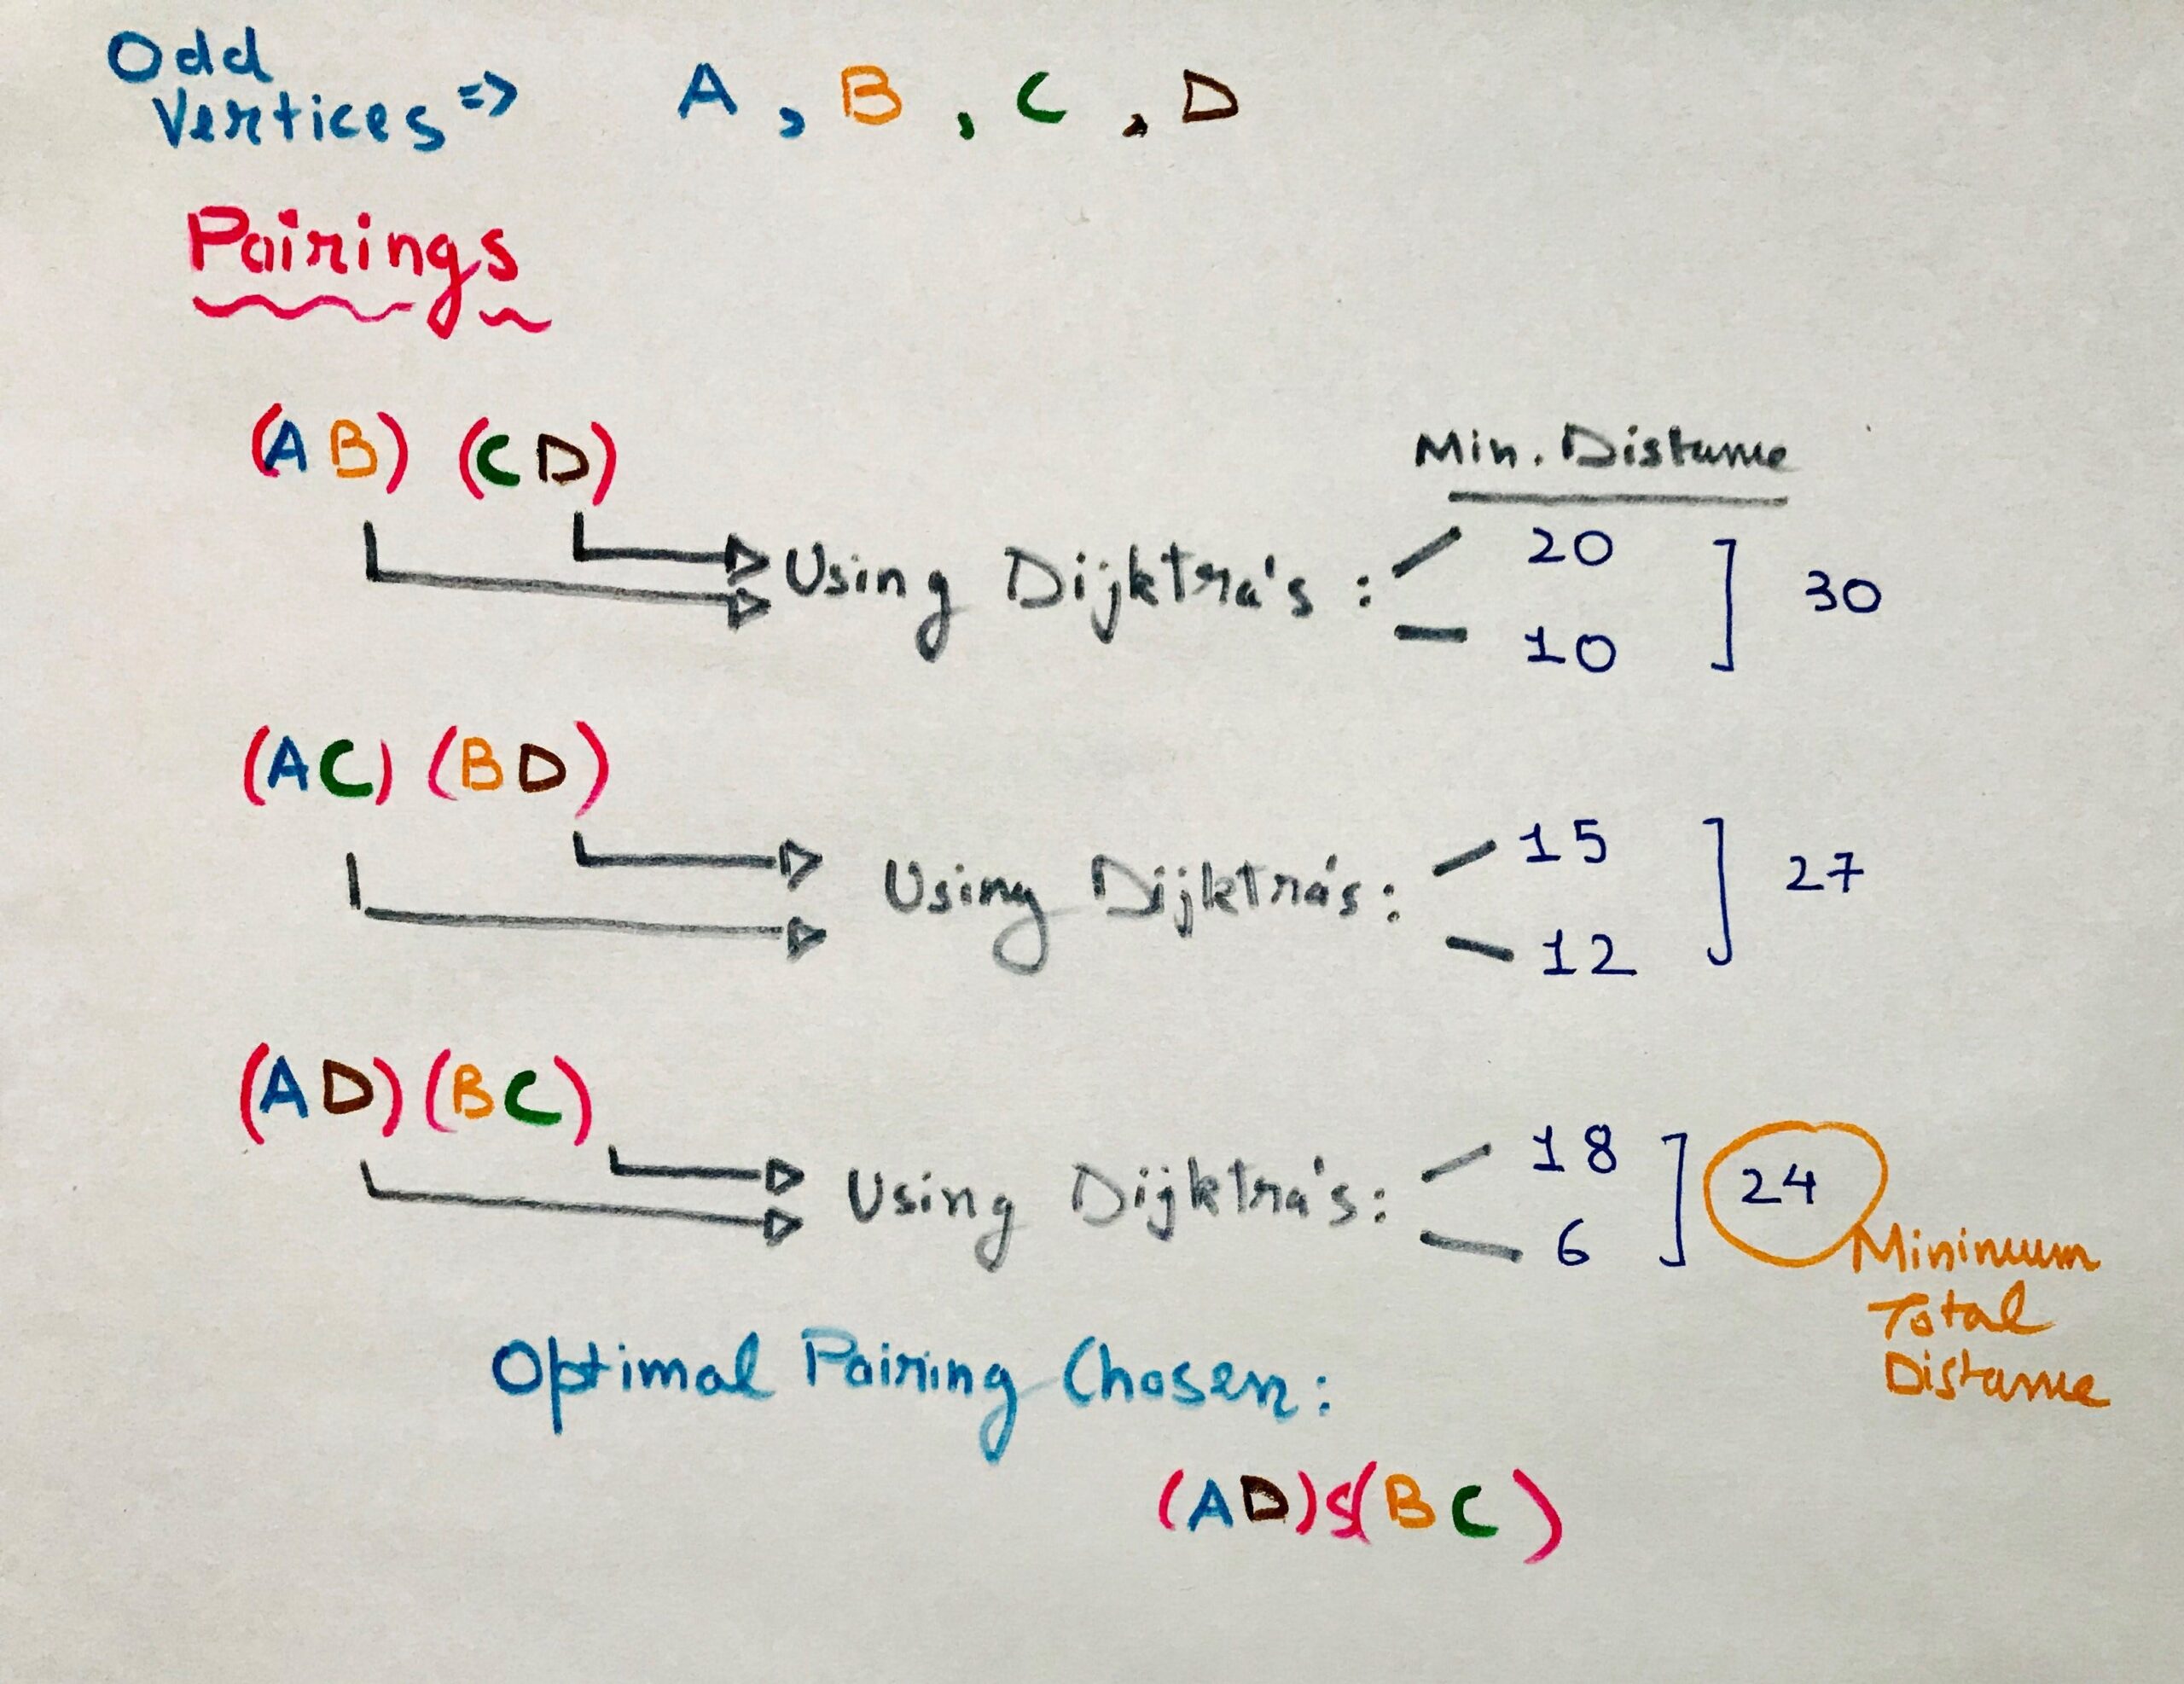 Odd
Vertices => A, B, C, D
Pairings
(AB) (CD)
Min. Distance
Using Dijktra's : 20
10
] 30
(AC) (BD)
Using Dijktra's : 15
12
] 27
(AD) (BC)
Using Dijktra's : 18
6
] 24
Minimum
Total
Distance
Optimal Pairing Chosen:
(AD) & (BC)